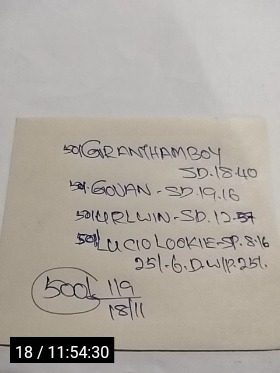 50/GRANTHAM BOY
SD.18.40
50/.GOVAN-SD.19.16
50/URLWIN-SD.17.57
50/LUCIO LOOKIE-SP.8.16
25/-6.D.W/P.25/.
500/. 119
18/11
18 / 11:54:30